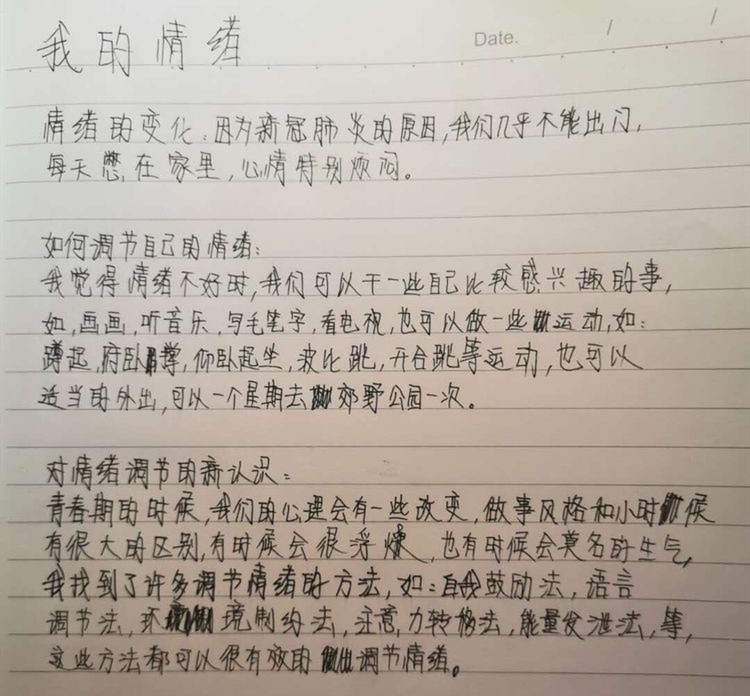 我的情绪
Date. / /
情绪的变化:因为新冠肺炎的原因,我们几乎不能出门,
每天憋在家里,心情特别烦闷。
如何调节自己的情绪:
我觉得情绪不好时,我们可以干一些自己比较感兴趣的事,
如,画画,听音乐,写毛笔字,看电视,也可以做一些运动,如:
蹲起,府卧撑,仰卧起坐,波比跳,开合跳等运动,也可以
适当的外出,可以一个星期去郊野公园一次。
对情绪调节的新认识:
青春期的时候,我们的心理会有一些改变,做事风格和小时候
有很大的区别,有时候会很浮燥,也有时候会莫名的生气,
我找到了许多调节情绪的方法,如:自我鼓励法,语言
调节法,环境制约法,注意力转移法,能量发泄法,等,
这些方法都可以很有效的调节情绪。